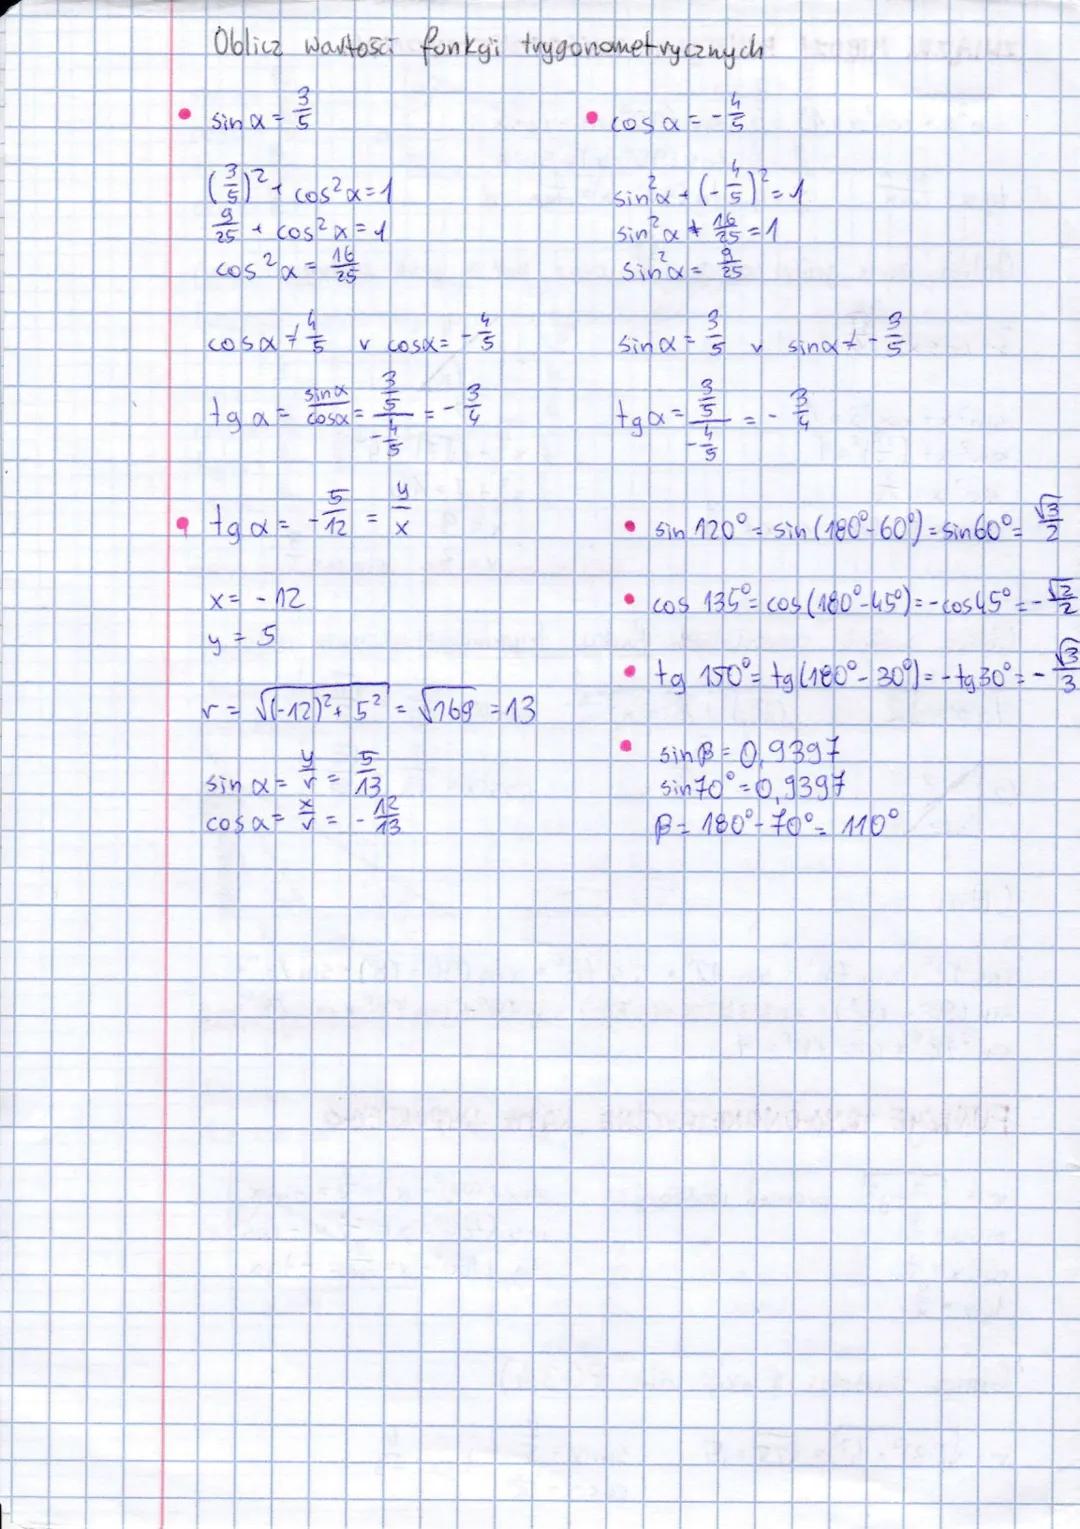 Oblicz wartości funkcji trygonometrycznych
• sin α = 3/5
(3/5)² + cos²α = 1
9/25 + cos²α = 1
cos²α = 16/25
cosα ≠ 4/5 v cosα = -4/5
tg α = sinα/cosα = 3/5 / -4/5 = -3/4
• cos α = -4/5
sin²α + (-4/5)² = 1
sin²α + 16/25 = 1
sin²α = 9/25
sinα = 3/5 v sinα ≠ -3/5
tgα = 3/5 / -4/5 = -3/4
• tg α = -5/12 = y/x
x = -12
y = 5
r = √(-12)² + 5² = √169 = 13
sin α = y/r = 5/13
cos α = x/r = -12/13
• sin 120° = sin (180°-60°) = sin60° = √3/2
• cos 135° = cos (180°-45°) = -cos45° = -√2/2
• tg 150° = tg (180° - 30°) = -tg30° = -√3/3
• sinβ = 0,9397
sin70° = 0,9397
β = 180° - 70° = 110°